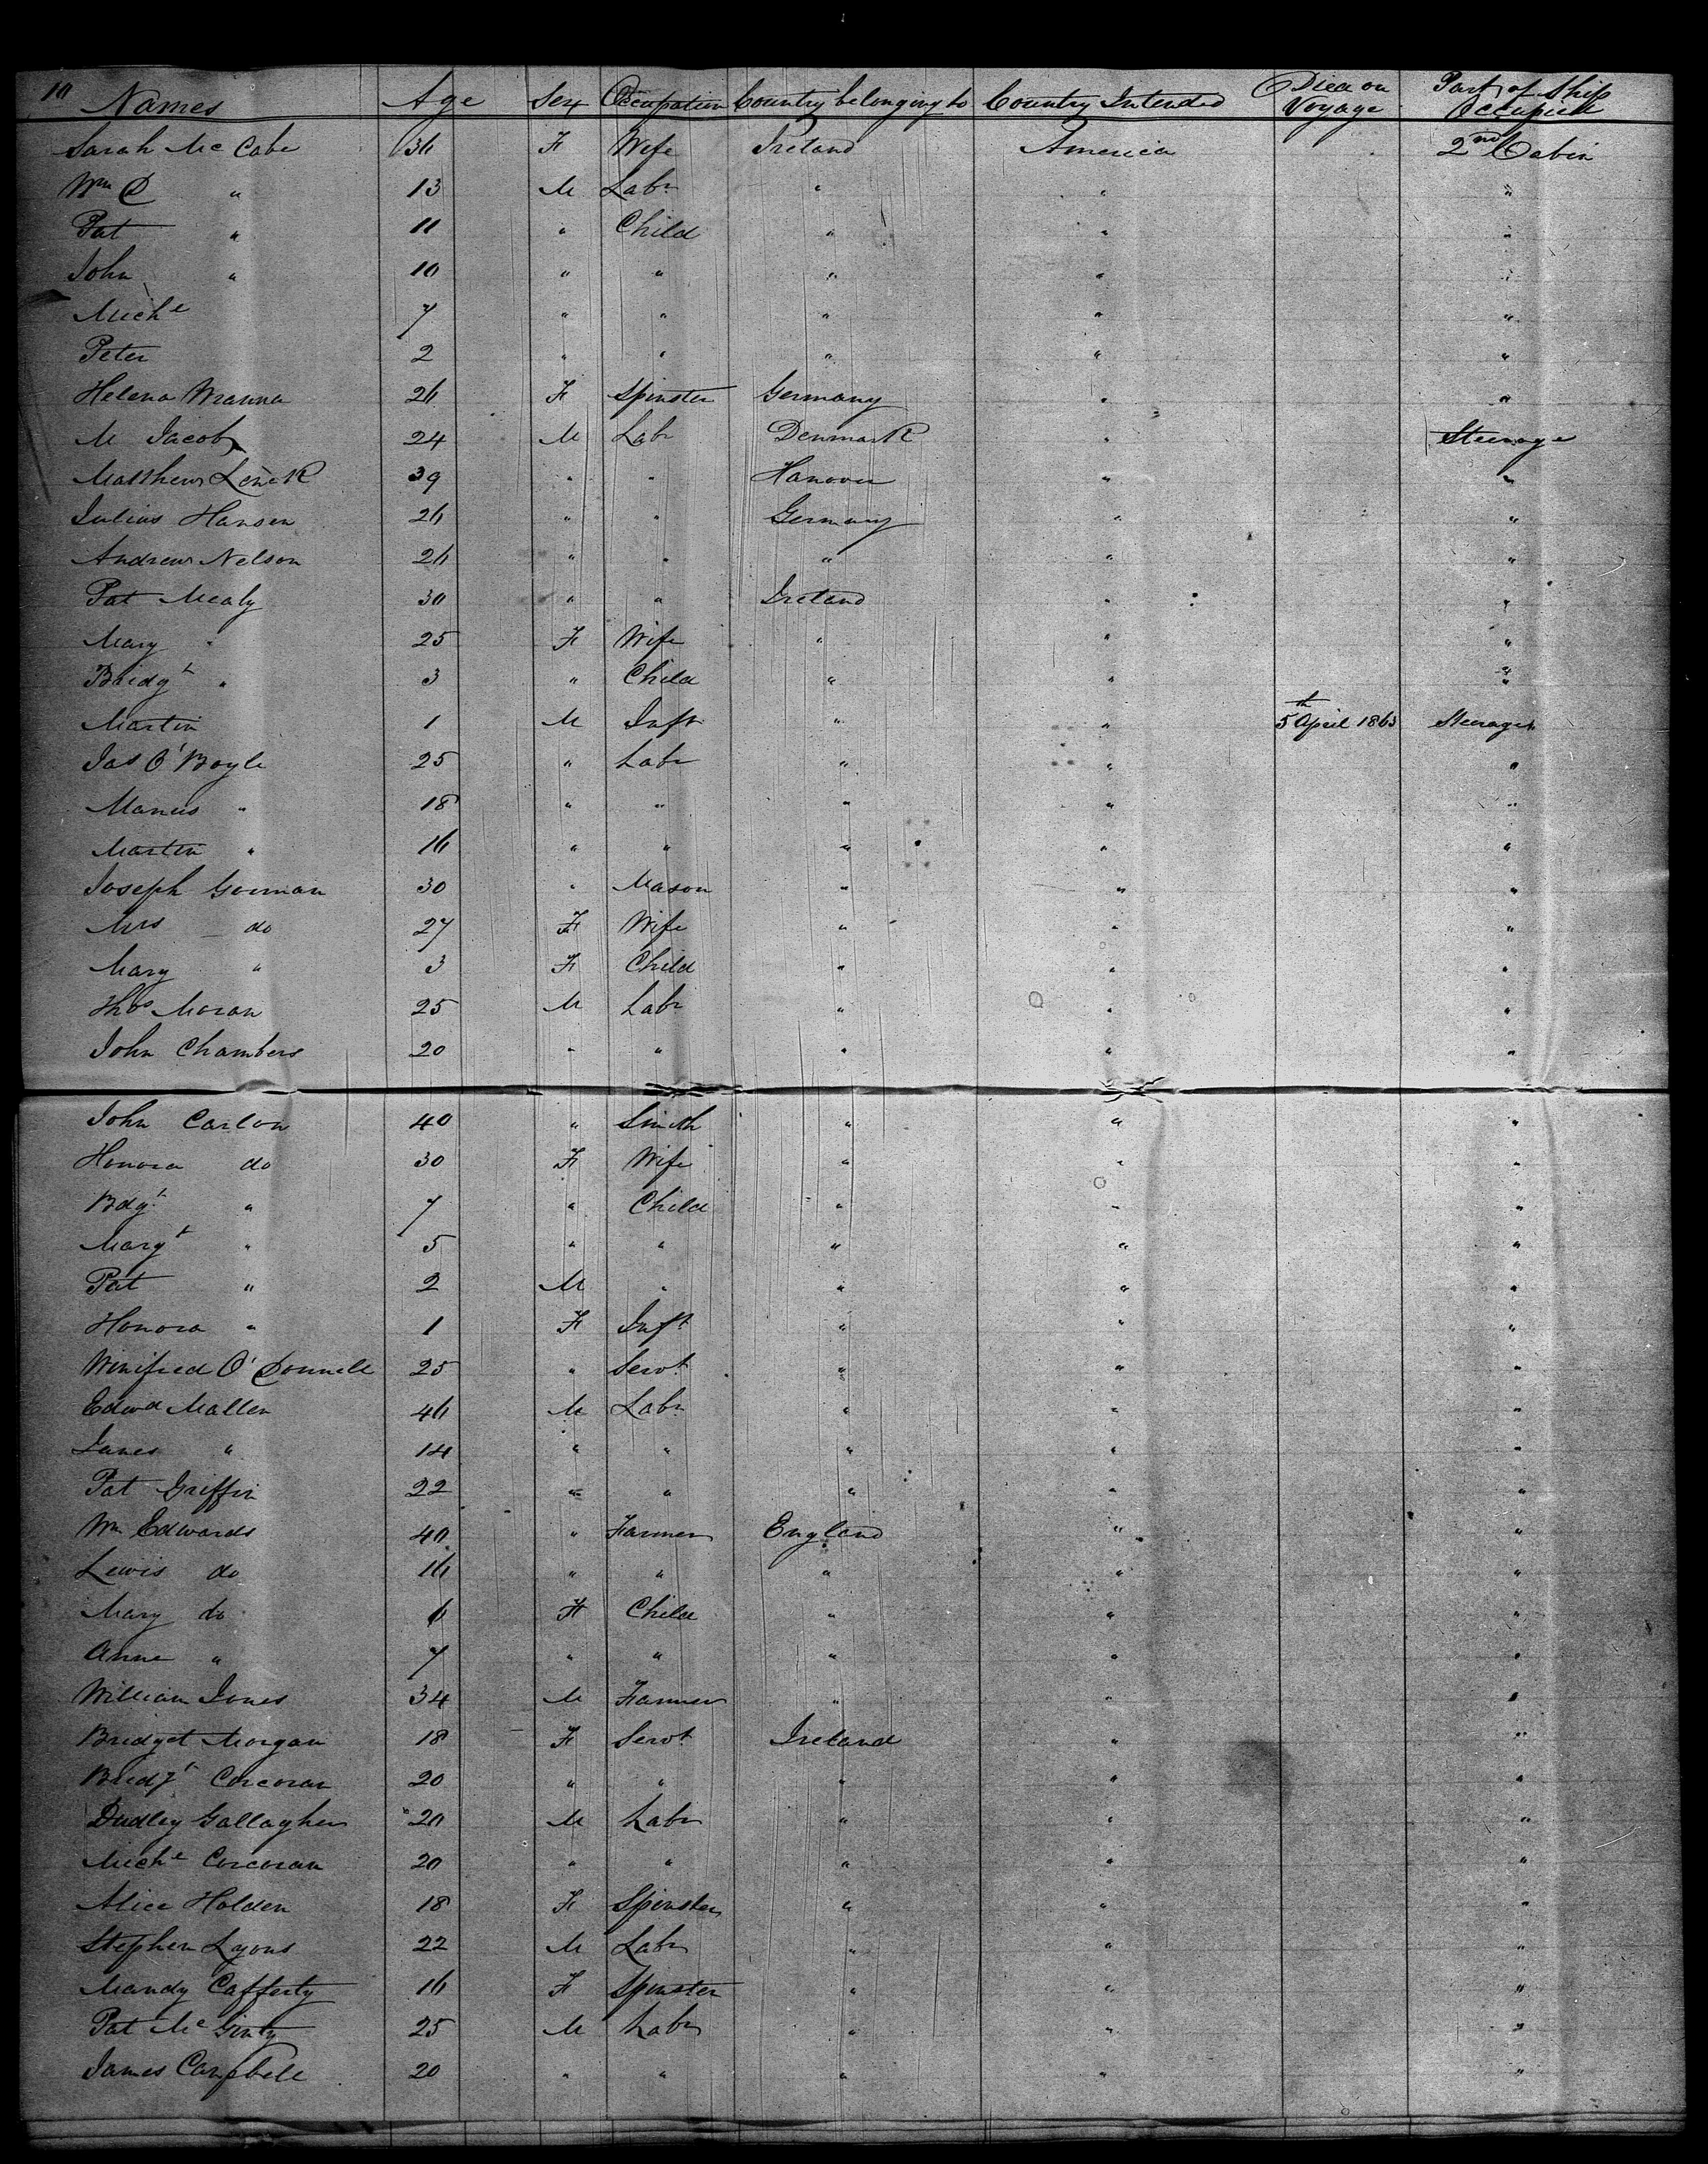 10 Names Age Sex Occupation Country belonging to Country Intended Died on Voyage Part of Ship Occupied
Sarah Mc Cabe 36 F Wife Ireland America 2nd Cabin
Wm " 13 M Labr " " "
Pat " 11 " Child " " "
John " 10 " " " " "
Michl 7 " " " " "
Peter 2 " " " " "
Helena 26 F Spinster Germany " "
M Jacob 24 M Labr Denmark " Steerage
Matthew 39 " " Hanover " "
Julius Hansen 26 " " Germany " "
Andrew Nelson 26 " " " " "
Pat Mealy 30 " " Ireland " "
Mary " 25 F Wife " " "
Bridgt " 3 " Child " " "
Martin 1 M Inft " " 5th April 1863 Steerage
Jas O'Boyle 25 " Labr " " "
Manus " 18 " " " " "
Martin " 16 " " " " "
Joseph Gorman 30 " Mason " " "
Mrs do 27 F Wife " " "
Mary " 3 F Child " " "
Thos Moran 25 M Labr " " "
John Chambers 20 " " " " "
John Carlon 40 " Smith " " "
Honora do 30 F Wife " " "
Bdgt " 7 " Child " " "
Margt " 5 " " " " "
Pat " 2 M " " " "
Honora " 1 F Inft " " "
Winifred O'Donnell 25 " Servt " " "
Edwd Mallen 46 M Labr " " "
James " 14 " " " " "
Pat Griffin 22 " " " " "
Wm Edwards 40 " Farmer England " "
Lewis do 16 " " " " "
Mary do 6 F Child " " "
Anne " 7 " " " " "
William Jones 34 M Farmer " " "
Bridget Morgan 18 F Servt Ireland " "
Bridgt Corcoran 20 " " " " "
Dudley Gallagher 20 M Labr " " "
Michl Corcoran 20 " " " " "
Alice Holden 18 F Spinster " " "
Stephen Lyons 22 M Labr " " "
Mandy Cafferty 16 F Spinster " " "
Pat Mc Ginty 25 M Labr " " "
James Campbell 20 " " " " "